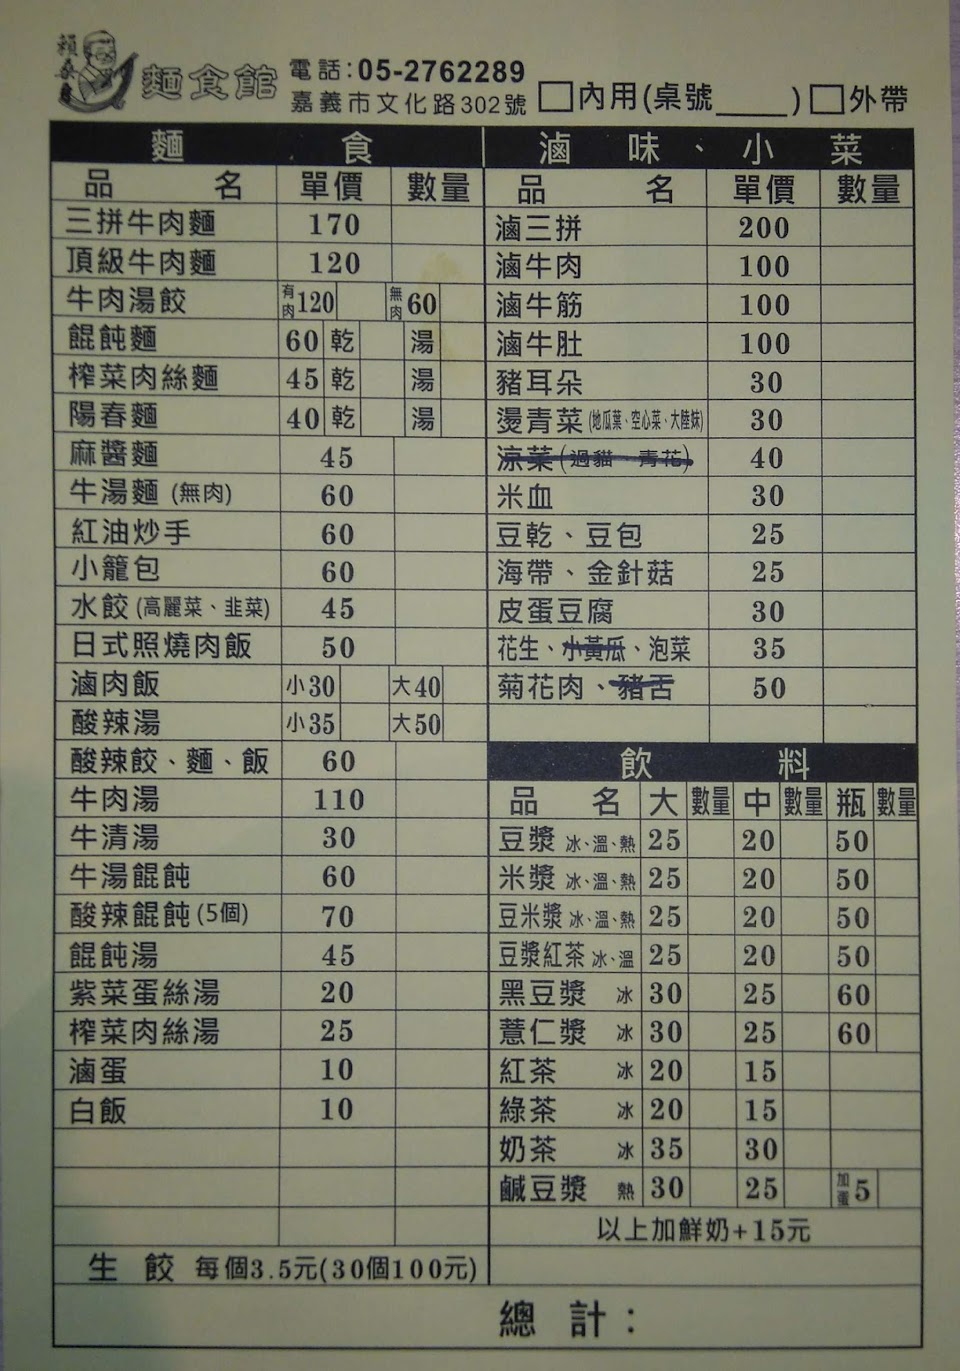 賴桑 麵食館
電話:05-2762289
嘉義市文化路302號 □內用(桌號____) □外帶
麵 食
品 名 單價 數量
三拼牛肉麵 170
頂級牛肉麵 120
牛肉湯餃 有肉120 無肉60
餛飩麵 60 乾 湯
榨菜肉絲麵 45 乾 湯
陽春麵 40 乾 湯
麻醬麵 45
牛湯麵 (無肉) 60
紅油炒手 60
小籠包 60
水餃 (高麗菜、韭菜) 45
日式照燒肉飯 50
滷肉飯 小30 大40
酸辣湯 小35 大50
酸辣餃、麵、飯 60
牛肉湯 110
牛清湯 30
牛湯餛飩 60
酸辣餛飩 (5個) 70
餛飩湯 45
紫菜蛋絲湯 20
榨菜肉絲湯 25
滷蛋 10
白飯 10
生 餃 每個3.5元(30個100元)
滷 味、小 菜
品 名 單價 數量
滷三拼 200
滷牛肉 100
滷牛筋 100
滷牛肚 100
豬耳朵 30
燙青菜 (地瓜葉、空心菜、大陸妹) 30
涼菜(過貓 青花) 40
米血 30
豆乾、豆包 25
海帶、金針菇 25
皮蛋豆腐 30
花生、小黃瓜、泡菜 35
菊花肉、豬舌 50
飲 料
品 名 大 數量 中 數量 瓶 數量
豆漿 冰、溫、熱 25 20 50
米漿 冰、溫、熱 25 20 50
豆米漿 冰、溫、熱 25 20 50
豆漿紅茶 冰、溫 25 20 50
黑豆漿 冰 30 25 60
薏仁漿 冰 30 25 60
紅茶 冰 20 15
綠茶 冰 20 15
奶茶 冰 35 30
鹹豆漿 熱 30 25 加蛋5
以上加鮮奶+15元
總 計：